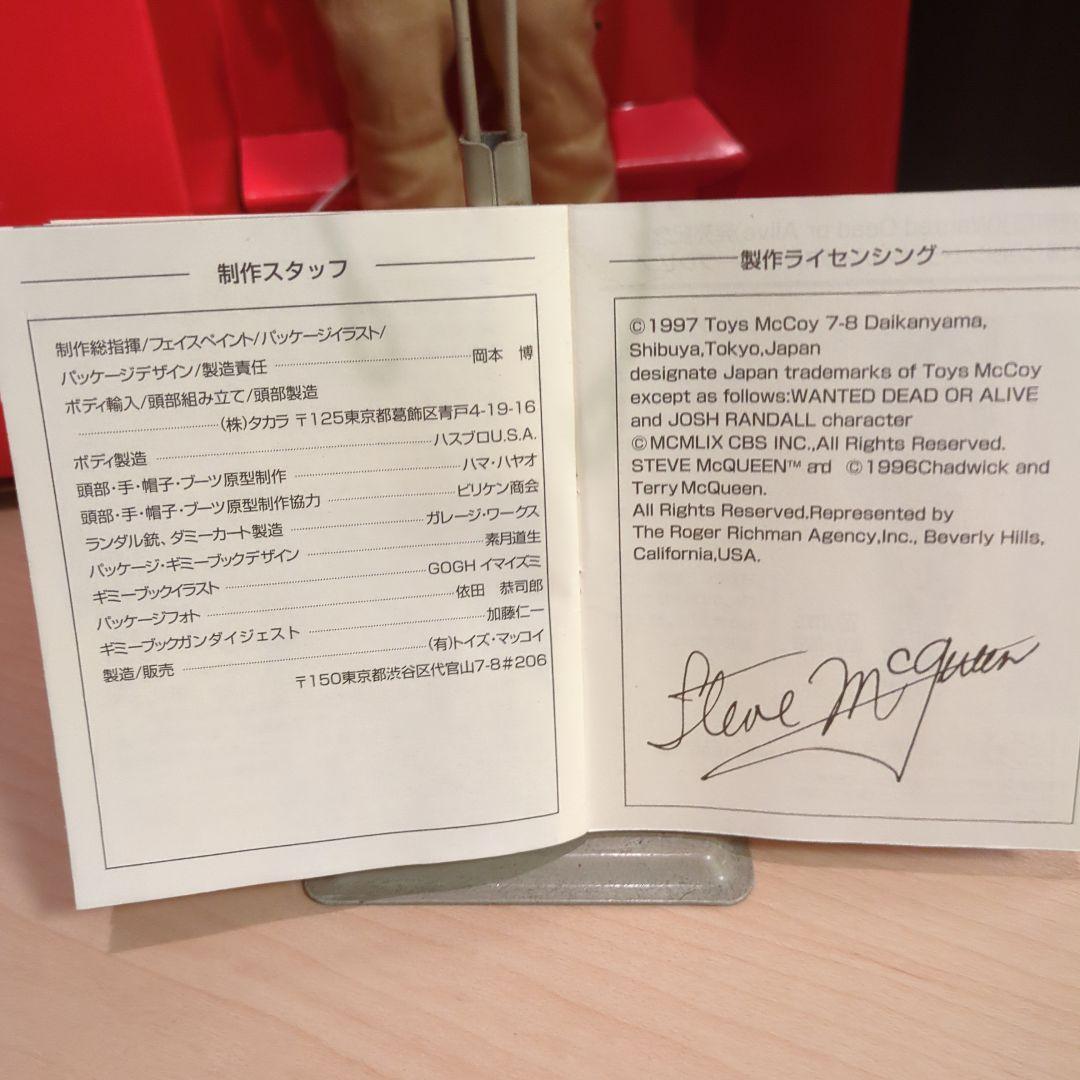 制作スタッフ
制作総指揮/フェイスペイント/パッケージイラスト/
パッケージデザイン/製造責任 岡本 博
ボディ輸入/頭部組み立て/頭部製造
(株)タカラ 〒125東京都葛飾区青戸4-19-16
ボディ製造 ハスブロU.S.A.
頭部・手・帽子・ブーツ原型制作 ハマ・ハヤオ
頭部・手・帽子・ブーツ原型制作協力 ビリケン商会
ランダル銃、ダミーカート製造 ガレージ・ワークス
パッケージ・ギミーブックデザイン 素月道生
ギミーブックイラスト GOGH イマイズミ
パッケージフォト 依田 恭司郎
ギミーブックガンダイジェスト 加藤仁一
製造/販売 (有)トイズ・マッコイ
〒150東京都渋谷区代官山7-8#206
製作ライセンシング
©1997 Toys McCoy 7-8 Daikanyama,
Shibuya,Tokyo,Japan
designate Japan trademarks of Toys McCoy
except as follows:WANTED DEAD OR ALIVE
and JOSH RANDALL character
©MCMLIX CBS INC.,All Rights Reserved.
STEVE McQUEEN™ and ©1996Chadwick and
Terry McQueen.
All Rights Reserved.Represented by
The Roger Richman Agency,Inc., Beverly Hills,
California,USA.
Steve McQueen